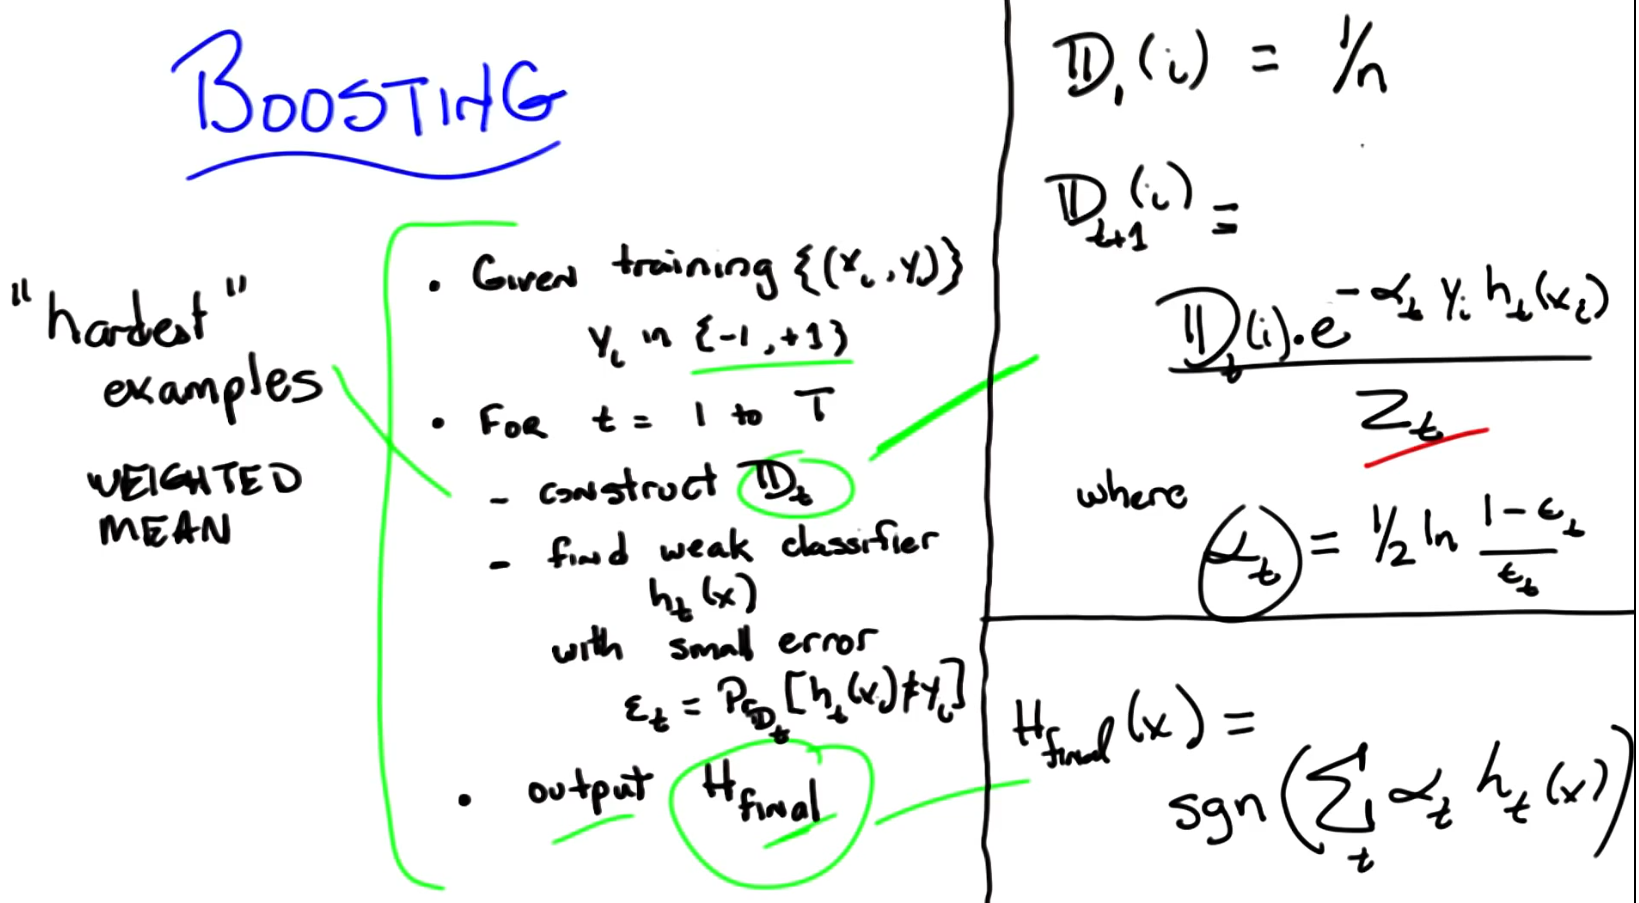 BOOSTING
"hardest"
examples
WEIGHTED
MEAN
• Given training {(xᵢ, yᵢ)}
yᵢ in {-1, +1}
• For t = 1 to T
- construct 𝔻ₜ
- find weak classifier
hₜ(x)
with small error
εₜ = Pr_𝔻ₜ [hₜ(xᵢ) ≠ yᵢ]
• output H_final
𝔻₁(i) = 1/n
𝔻ₜ₊₁(i) =
𝔻ₜ(i) · e^(-αₜ yᵢ hₜ(xᵢ))
Zₜ
where
αₜ = 1/2 ln (1-εₜ)/εₜ
H_final(x) =
sgn(Σₜ αₜ hₜ(x))